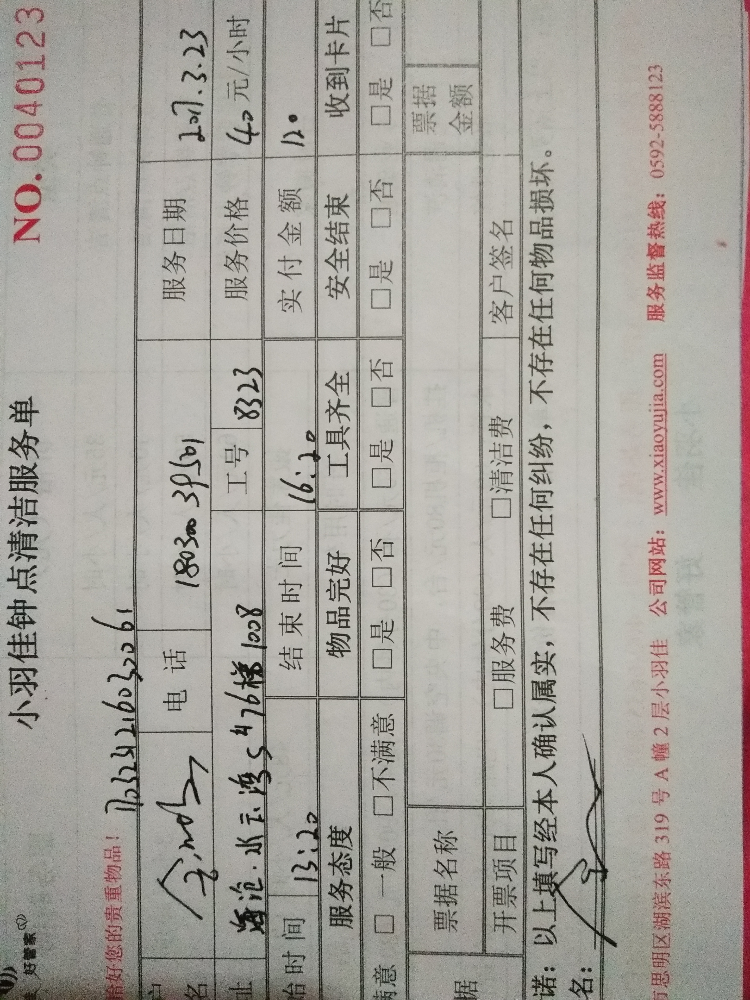 好管家
小羽佳钟点清洁服务单
NO.0040123
您的贵重物品！
电话 服务日期 2017.3.23
址 海沧.水云湾 1008 工号 8323 服务价格 40 元/小时
始时间 13:20 结束时间 16:20 实付金额 120
服务态度 物品完好 工具齐全 安全结束 收到卡片
满意 □ 一般 □不满意 □是 □否 □是 □否 □是 □否 □是 □否
据 票据名称 票据金额
开票项目 □服务费 □清洁费 客户签名
诺：以上填写经本人确认属实，不存在任何纠纷，不存在任何物品损坏。
名：
思明区湖滨东路 319 号 A 幢 2 层小羽佳 公司网站：www.xiaoyujia.com 服务监督热线：0592-5888123